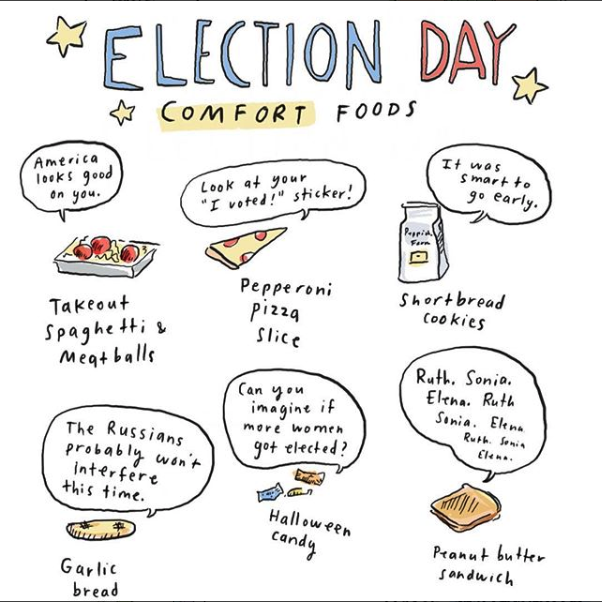 ELECTION DAY
COMFORT FOODS
America
looks good
on you.
Takeout
Spaghetti &
Meatballs
Look at your
"I voted!" sticker!
Pepperoni
Pizza
Slice
It was
smart to
go early.
Pepprid
Farm
Shortbread
cookies
The Russians
probably won't
interfere
this time.
Garlic
bread
Can you
imagine if
more women
got elected?
Halloween
candy
Ruth. Sonia.
Elena. Ruth
Sonia. Elena
Ruth. Sonia
Elena.
Peanut butter
sandwich